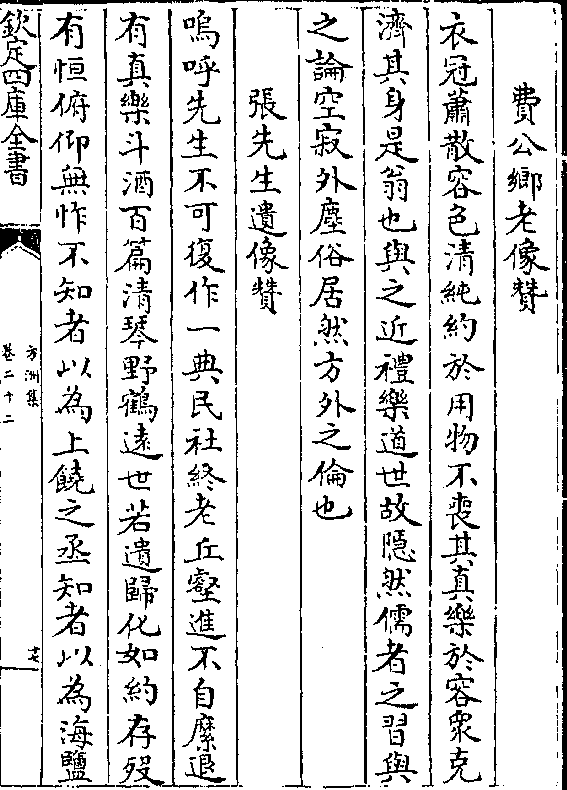 費公鄉老像贊
衣冠蕭散容色清純約於用物不喪其真樂於容衆克
濟其身是翁也與之近禮樂道世故隱然儒者之習與
之論空寂外塵俗居然方外之倫也
張先生遺像贊
嗚呼先生不可復作一典民社終老丘壑進不自縻退
有真樂斗酒百篇清琴野鶴遠世若遺歸化如約存歿
有恒俯仰無怍不知者以為上饒之丞知者以為海鹽
欽定四庫全書
方洲集
卷二十二
十七